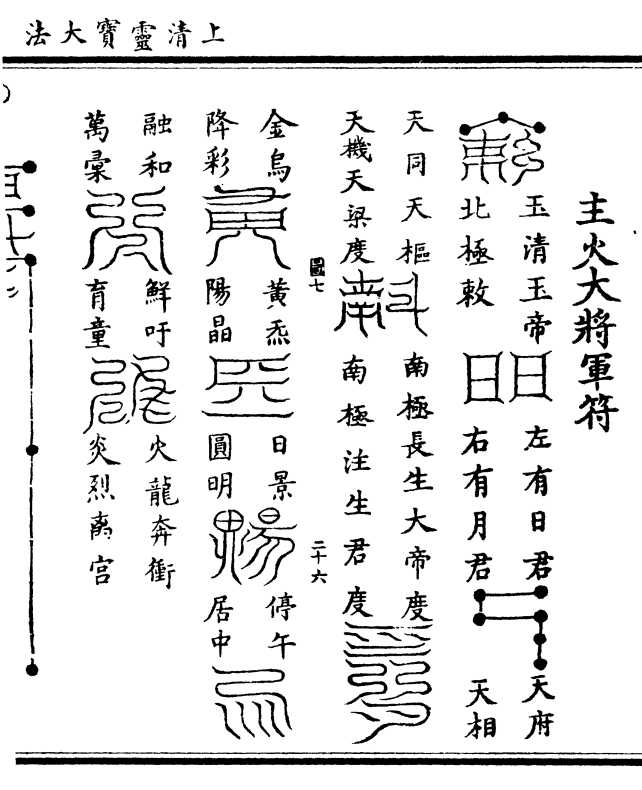 上清靈寶大法
主火大將軍符
玉清玉帝
北極敕
左有日君
右有月君
天府
天相
天同天樞
天機天梁度
南極長生大帝度
南極注生君度
圖七
二十六
金烏
降彩
黃炁
陽晶
日景
圓明
停午
居中
融和
萬彙
鮮吁
育童
火龍奔衝
炎烈离宮